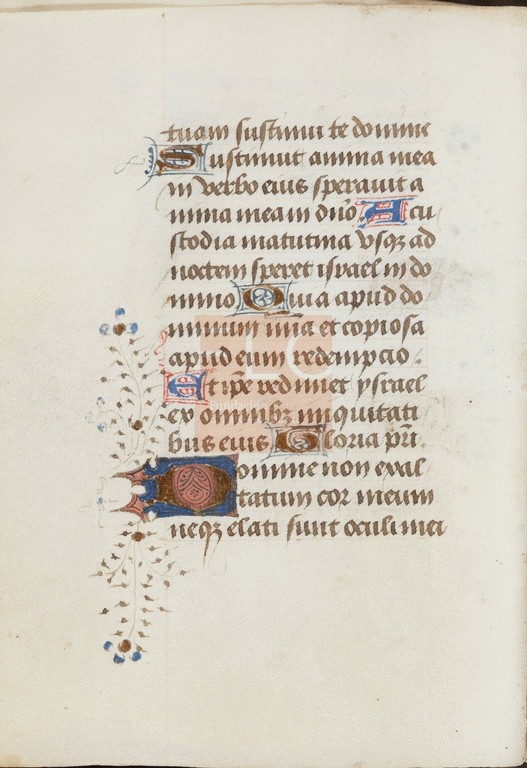 tuam sustinui te domine
Sustinuit anima mea
in verbo eius speravit a
nima mea in dño A cu
stodia matutina vsqꝫ ad
noctem speret israel in do
mino Quia apud do
minum mia et copiosa
apud eum redempcio.
Et ip̃e redimet ysrael
ex omnibꝫ iniquitati
bus eius Gloria pr̃i.
Domine non exal
tatum cor meum
neqꝫ elati sunt oculi mei